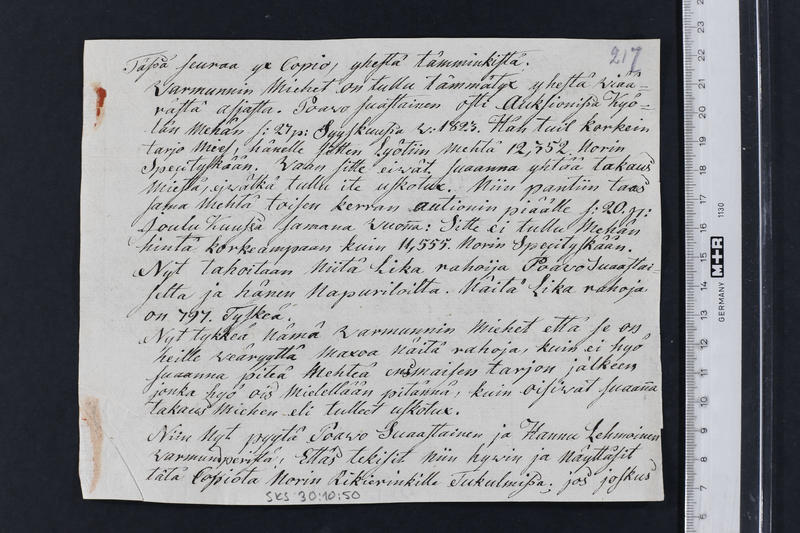 217
Tässä seuraa yx Copio, yhestä tämminkistä.
Varmunnin Miehet on tullu tämmätyx yhestä vää-
rästä asjasta. Poavo Suastainen osti Auksionissa Kyö-
län Mehän s: 27 p: Syyskuussa v: 1823. Hän tuil korkein
tarjo Mies, hänelle sitten Lyötiin Mehtä 12,352 Norin
Specityskään. Vaan sitte eivät suaanna yhtöä takaus
Miestä, eivätkä tullu ite uskotux. Niin pantiin taas
sama Mehtä toisen kerran autionin piäälle s: 20. p:
Joulu Kuussa samana Vuonna: Sitte ei tullu Mehän
hinta korkeampaan kuin 11,555. Norin Specityskään.
Nyt tahoitaan Niitä Lika rahoija Poavo Suaastai-
selta ja hänen Napuriloilta. Näitä Lika rahoja
on 797. Tyskeä.
Nyt tykkeä Nämä Varmunnin Miehet että se on
heille vääryyttä Maxoa Näitä rahoja, kuin ei hyö
suaanna piteä Mehteä ensimäisen tarjon jälkeen
jonka hyö ois Mielellään pitännä, kuin oisivat suaanna
takaus Miehen eli tulleet uskotux.
Niin Nyt pyytä Poavo Suaastainen ja Hannu Lehmoinen
Varmunperistä, Ettäs tekisit niin hywin ja Näyttäsit
tätä Copiota Norin Rikierinkille Tukulmissa; jos joskus
SKS 30:10:50
GERMANY M+R 1130
23
22
21
20
19
18
17
16
15
14
13
12
11
10
9
8
7
6
5